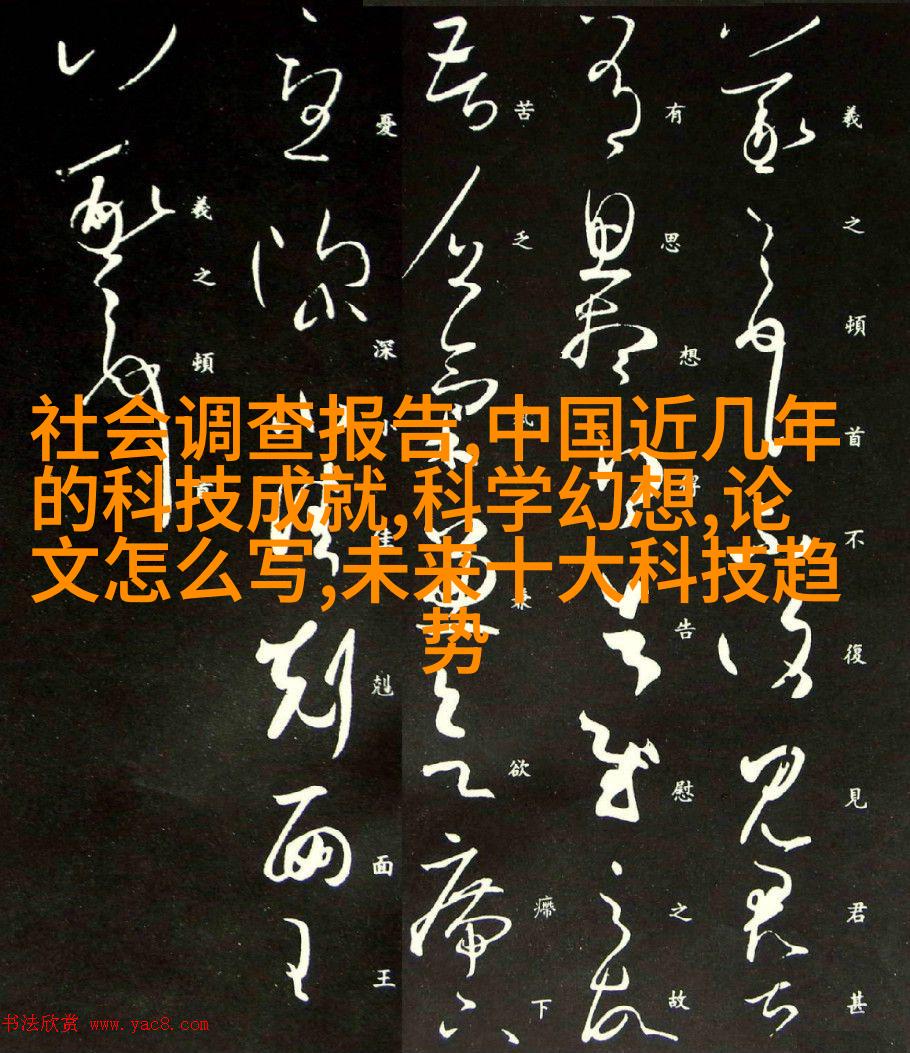 羲之頓首不復見君甚
有思想得告慰之故
苦乏氣兼欲㿃下
憂深小佳尅面王
羲之頓首
社会调查报告,中国近几年
的科技成就,科学幻想,论
文怎么写,未来十大科技趋
势
书法欣赏 www.yac8.com